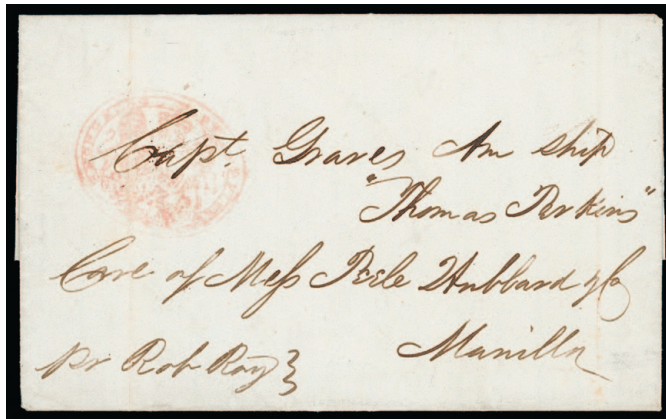 Capt. Graves Am ship
"Thomas Perkins"
Care of Mess Peele Hubbard & Co
Manilla
pr Rob Roy